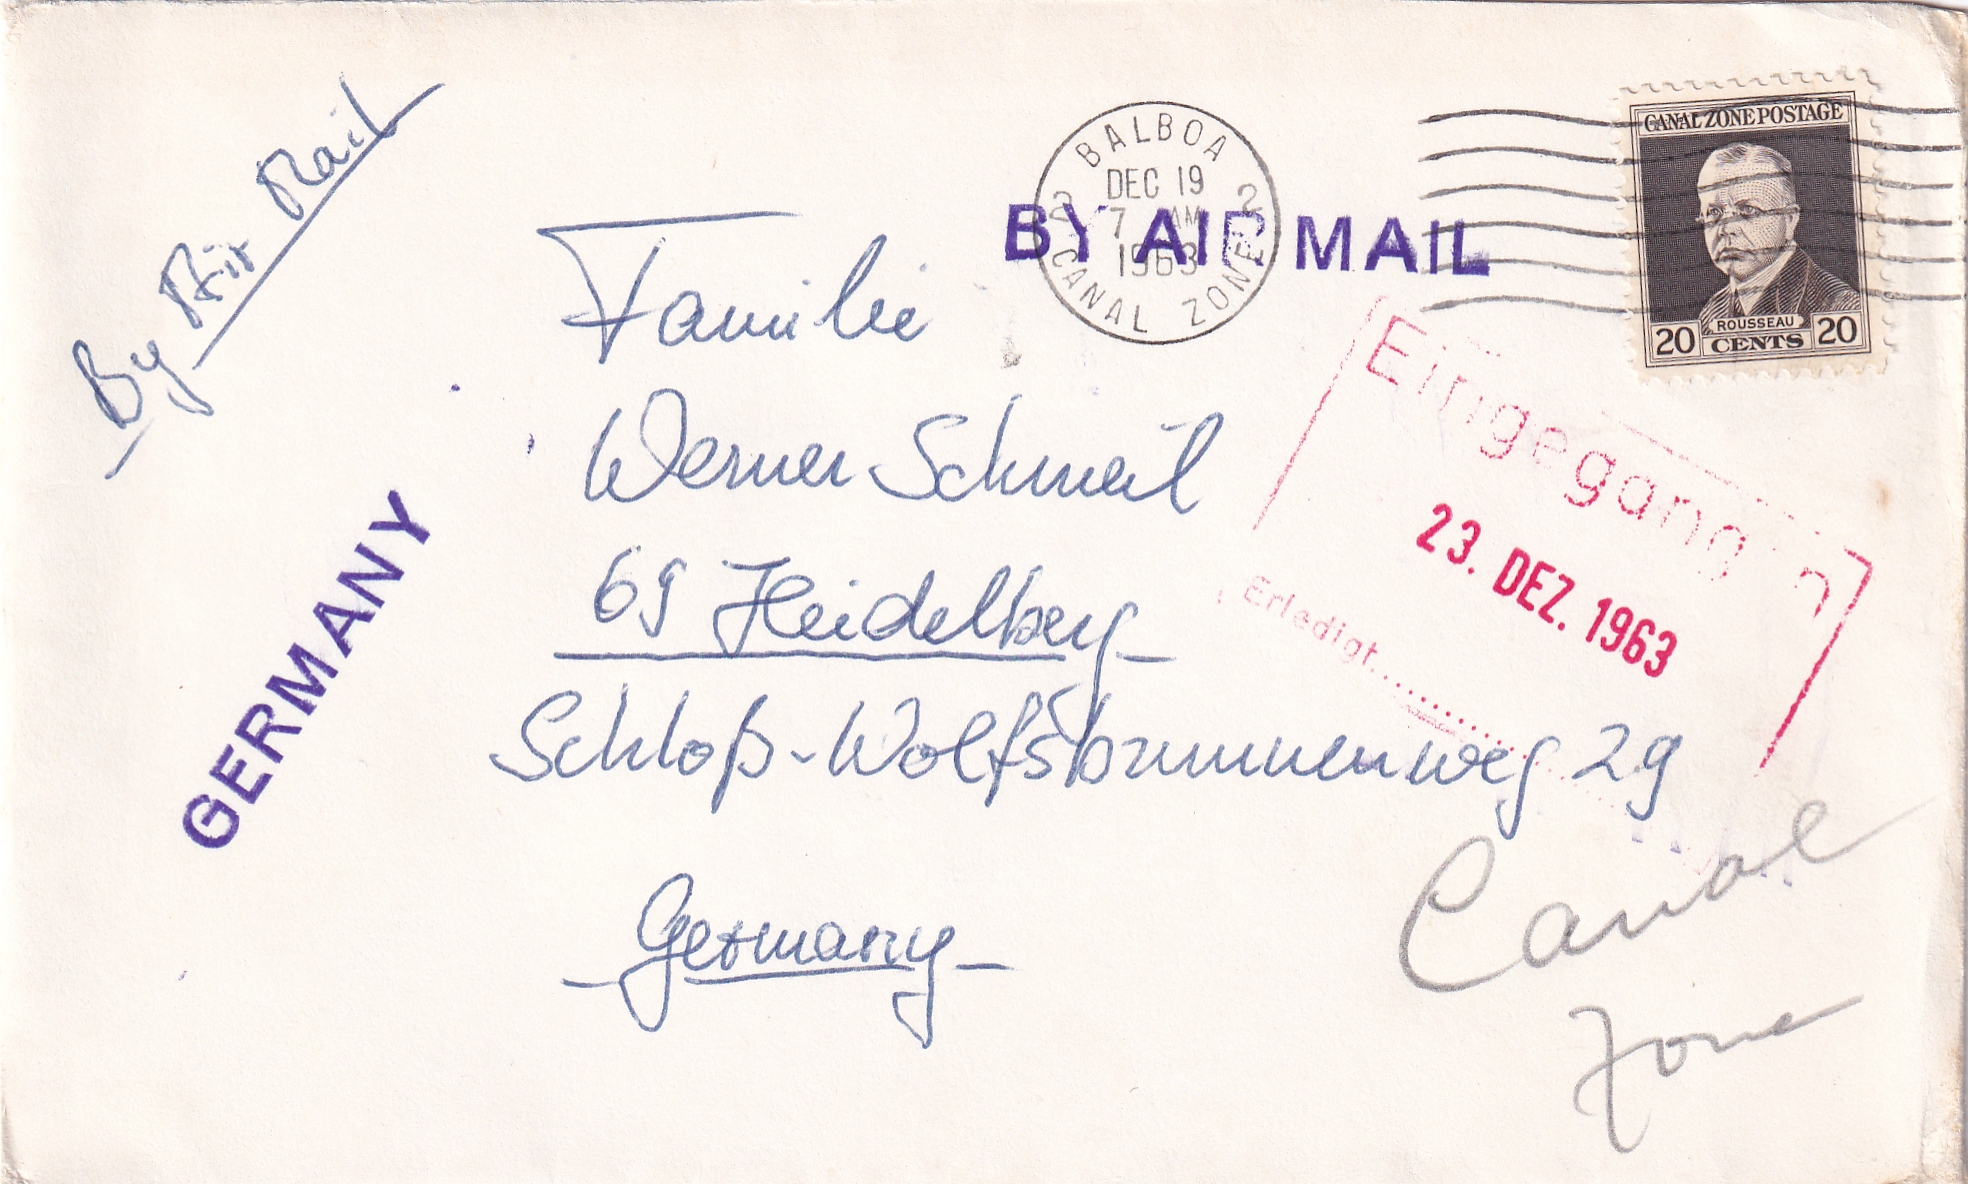 By Air Mail
BALBOA
DEC 19
7 AM
1963
CANAL ZONE
2 2
CANAL ZONE POSTAGE
ROUSSEAU
20 CENTS 20
BY AIR MAIL
Familie
Werner Schmeil
69 Heidelberg
Schloß-Wolfsbrunnenweg 29
Germany
GERMANY
Eingegangen
23. DEZ. 1963
Erledigt
Canal
Zone